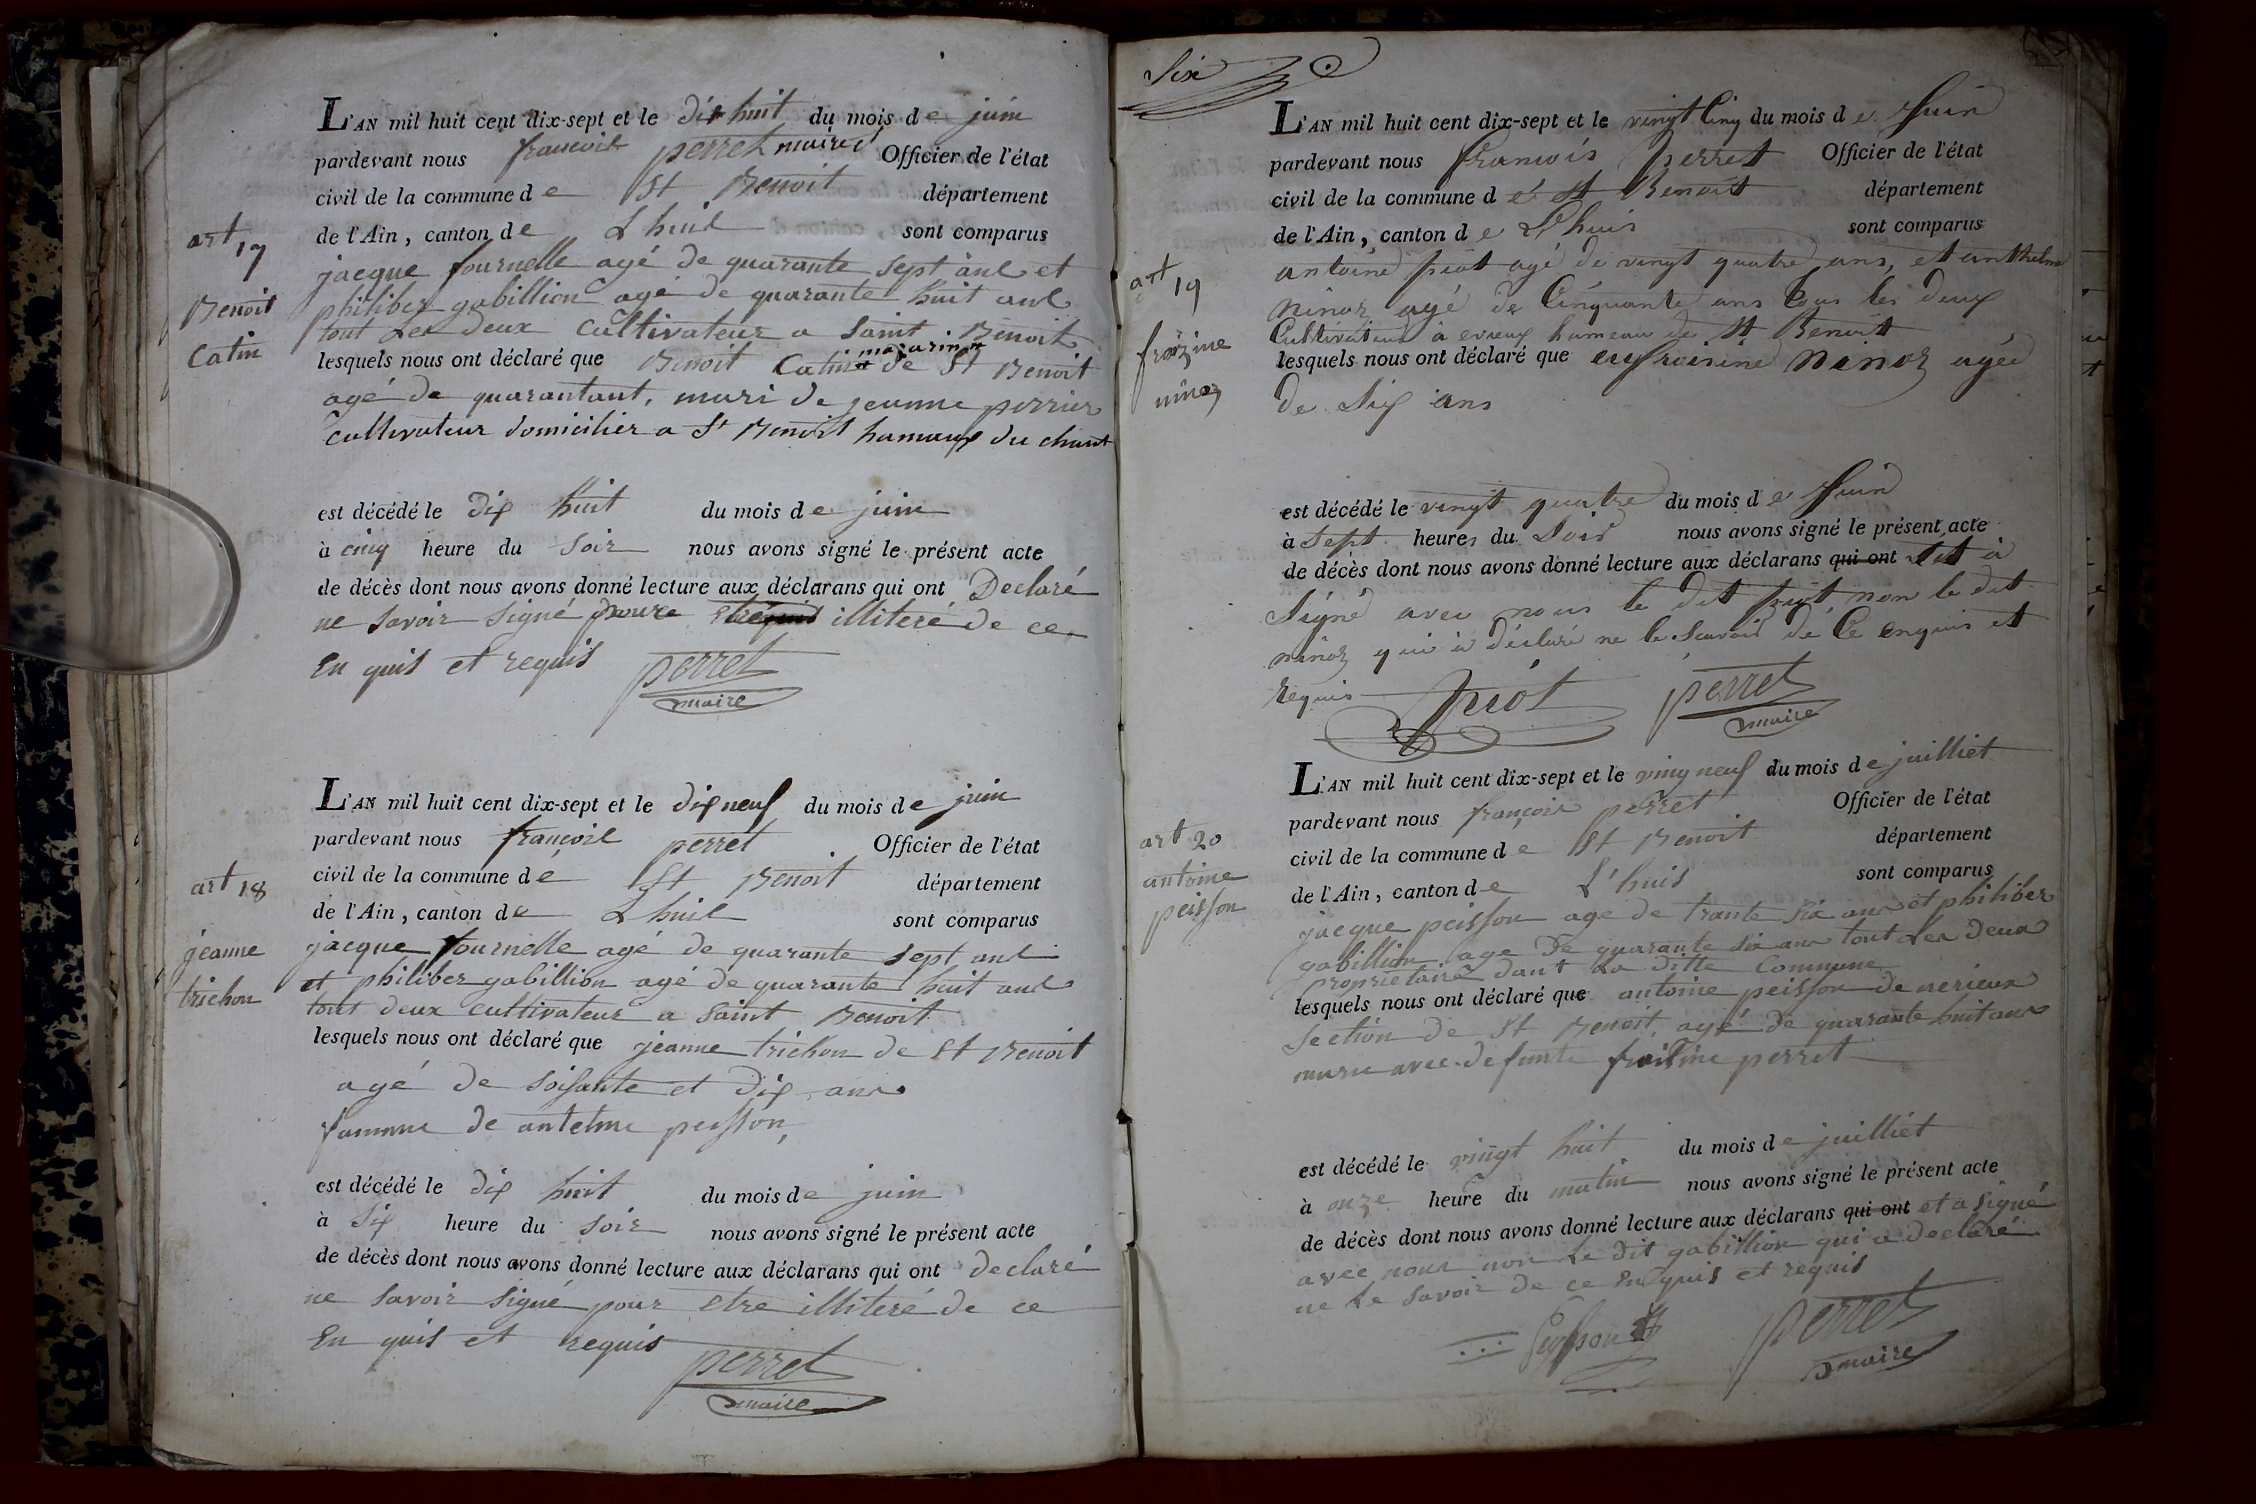 L'AN mil huit cent dix-sept et le dix huit du mois de juin
pardevant nous françois perret maire Officier de l'état
civil de la commune de St Benoit département
de l'Ain, canton de Lhuis sont comparus
art 17
Benoit
Catin
jacque fournelle agé de quarante sept ans et
philiber gabillion agé de quarante huit ans
tout les deux cultivateur a saint Benoit
lesquels nous ont déclaré que Benoit Catin mazarinon de St Benoit
agé de quarantant, mari de jeanne perrier
cultivateur domicilier a St Benoit hamaux du chant
est décédé le dix huit du mois de juin
à cinq heure du soir nous avons signé le présent acte
de décès dont nous avons donné lecture aux déclarans qui ont Declaré
ne savoir signé illiteré de ce
En quis et requis perret
maire
L'AN mil huit cent dix-sept et le dix neuf du mois de juin
pardevant nous françois perret Officier de l'état
civil de la commune de St Benoit département
de l'Ain, canton de Lhuis sont comparus
art 18
jeanne
trichon
jacque fournelle agé de quarante sept ans
et philiber gabillion agé de quarante huit ans
tous deux cultivateur a saint Benoit
lesquels nous ont déclaré que jeanne trichon de St Benoit
agé de soisante et dix ans
famme de antelme peisson,
est décédé le dix huit du mois de juin
à six heure du soir nous avons signé le présent acte
de décès dont nous avons donné lecture aux déclarans qui ont declaré
ne savoir signé pour etre illiteré de ce
En quis et requis perret
maire
Six
L'AN mil huit cent dix-sept et le vingt Cinq du mois de Juin
pardevant nous francois perret Officier de l'état
civil de la commune dé St Benoit département
de l'Ain, canton de Lhuis sont comparus
art 19
frozine
ninoz
antoine piot agé de vingt quatre ans, et anthelme
ninoz agé de Cinquante ans tous les deux
Cultivateurs à evieux hameau de St Benoit
lesquels nous ont déclaré que eufroisine ninoz agée
de Six ans
est décédé le vingt quatre du mois de Juin
à Sept heures du Soir nous avons signé le présent acte
de décès dont nous avons donné lecture aux déclarans qui ont et à
Signé avec nous le dit piot non le dit
ninoz qui à déclaré ne le Scavoir de Ce enquis et
requis piot perret
maire
L'AN mil huit cent dix-sept et le ving neuf du mois de juilliet
pardevant nous françois perret Officier de l'état
civil de la commune de St Benoit département
de l'Ain, canton de L'huis sont comparus
art 20
antoine
peisson
jacque peisson age de trante six ans et philiber
gabillion age de quarante six ans tout les deux
proprietaire dant La ditte Commune
lesquels nous ont déclaré que antoine peisson de
section de St Benoit, agé de quarante huit ans
marie avec defunte froisine perret
est décédé le vingt huit du mois de juilliet
à onze heure du matin nous avons signé le présent acte
de décès dont nous avons donné lecture aux déclarans qui ont et a signé
avec nous non Le dit gabillion qui a declaré
ne Le savoir de ce En quis et requis
Peysson perret
maire